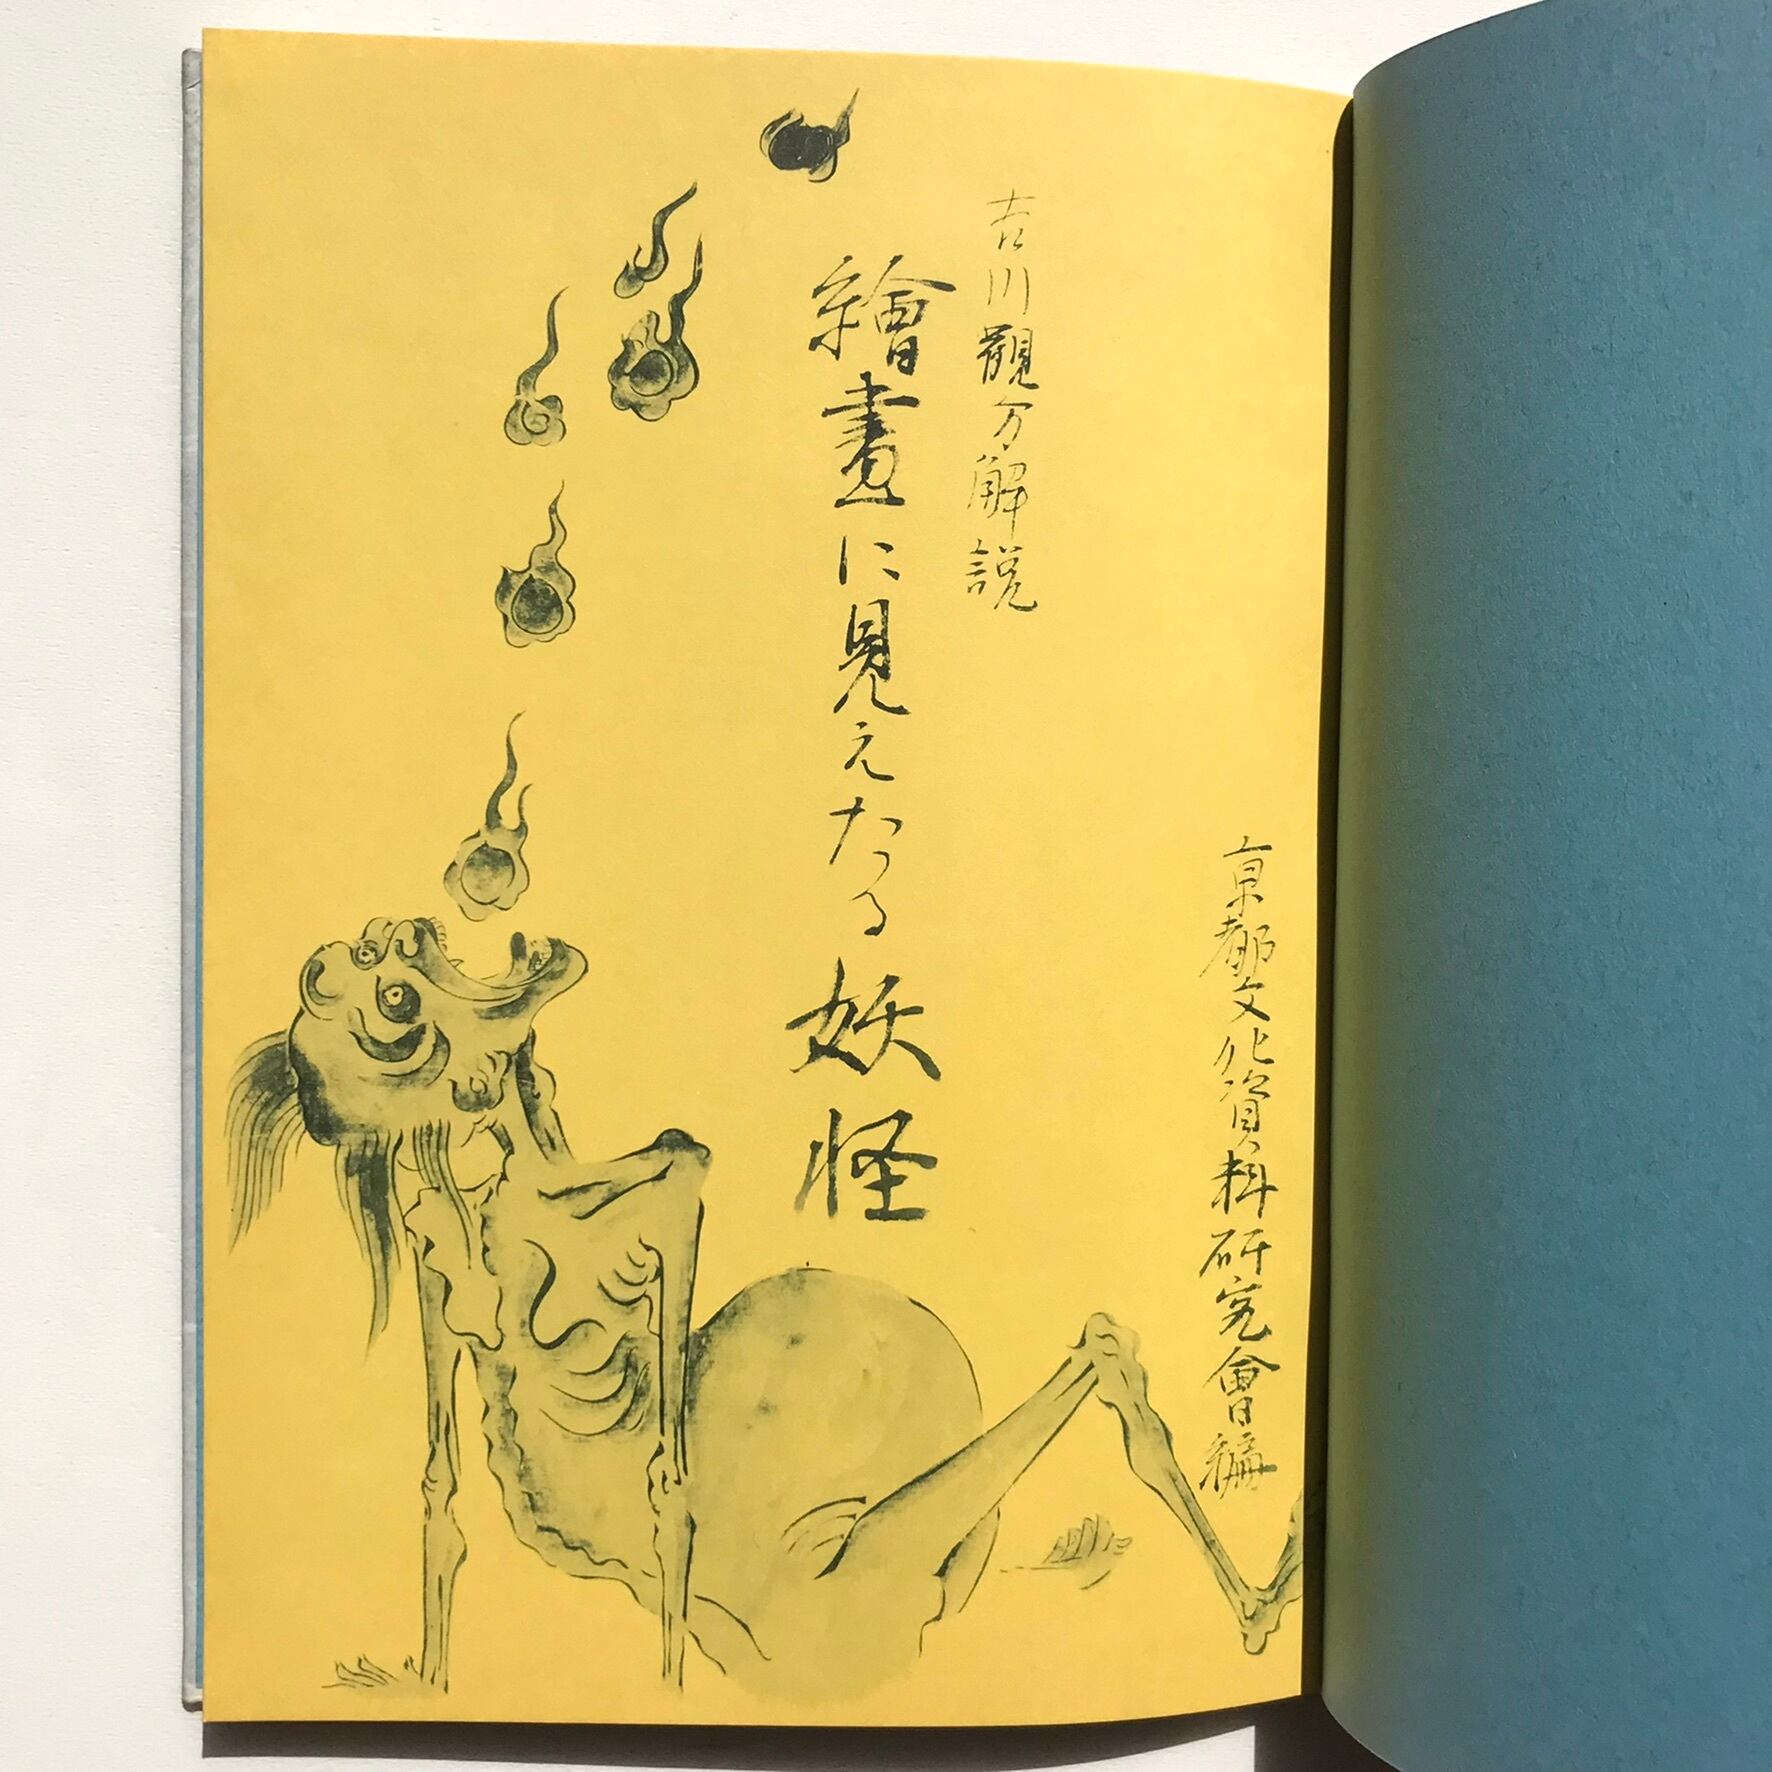 京都文化資料研究會編
吉川觀方解説
繪畫に見えたる妖怪